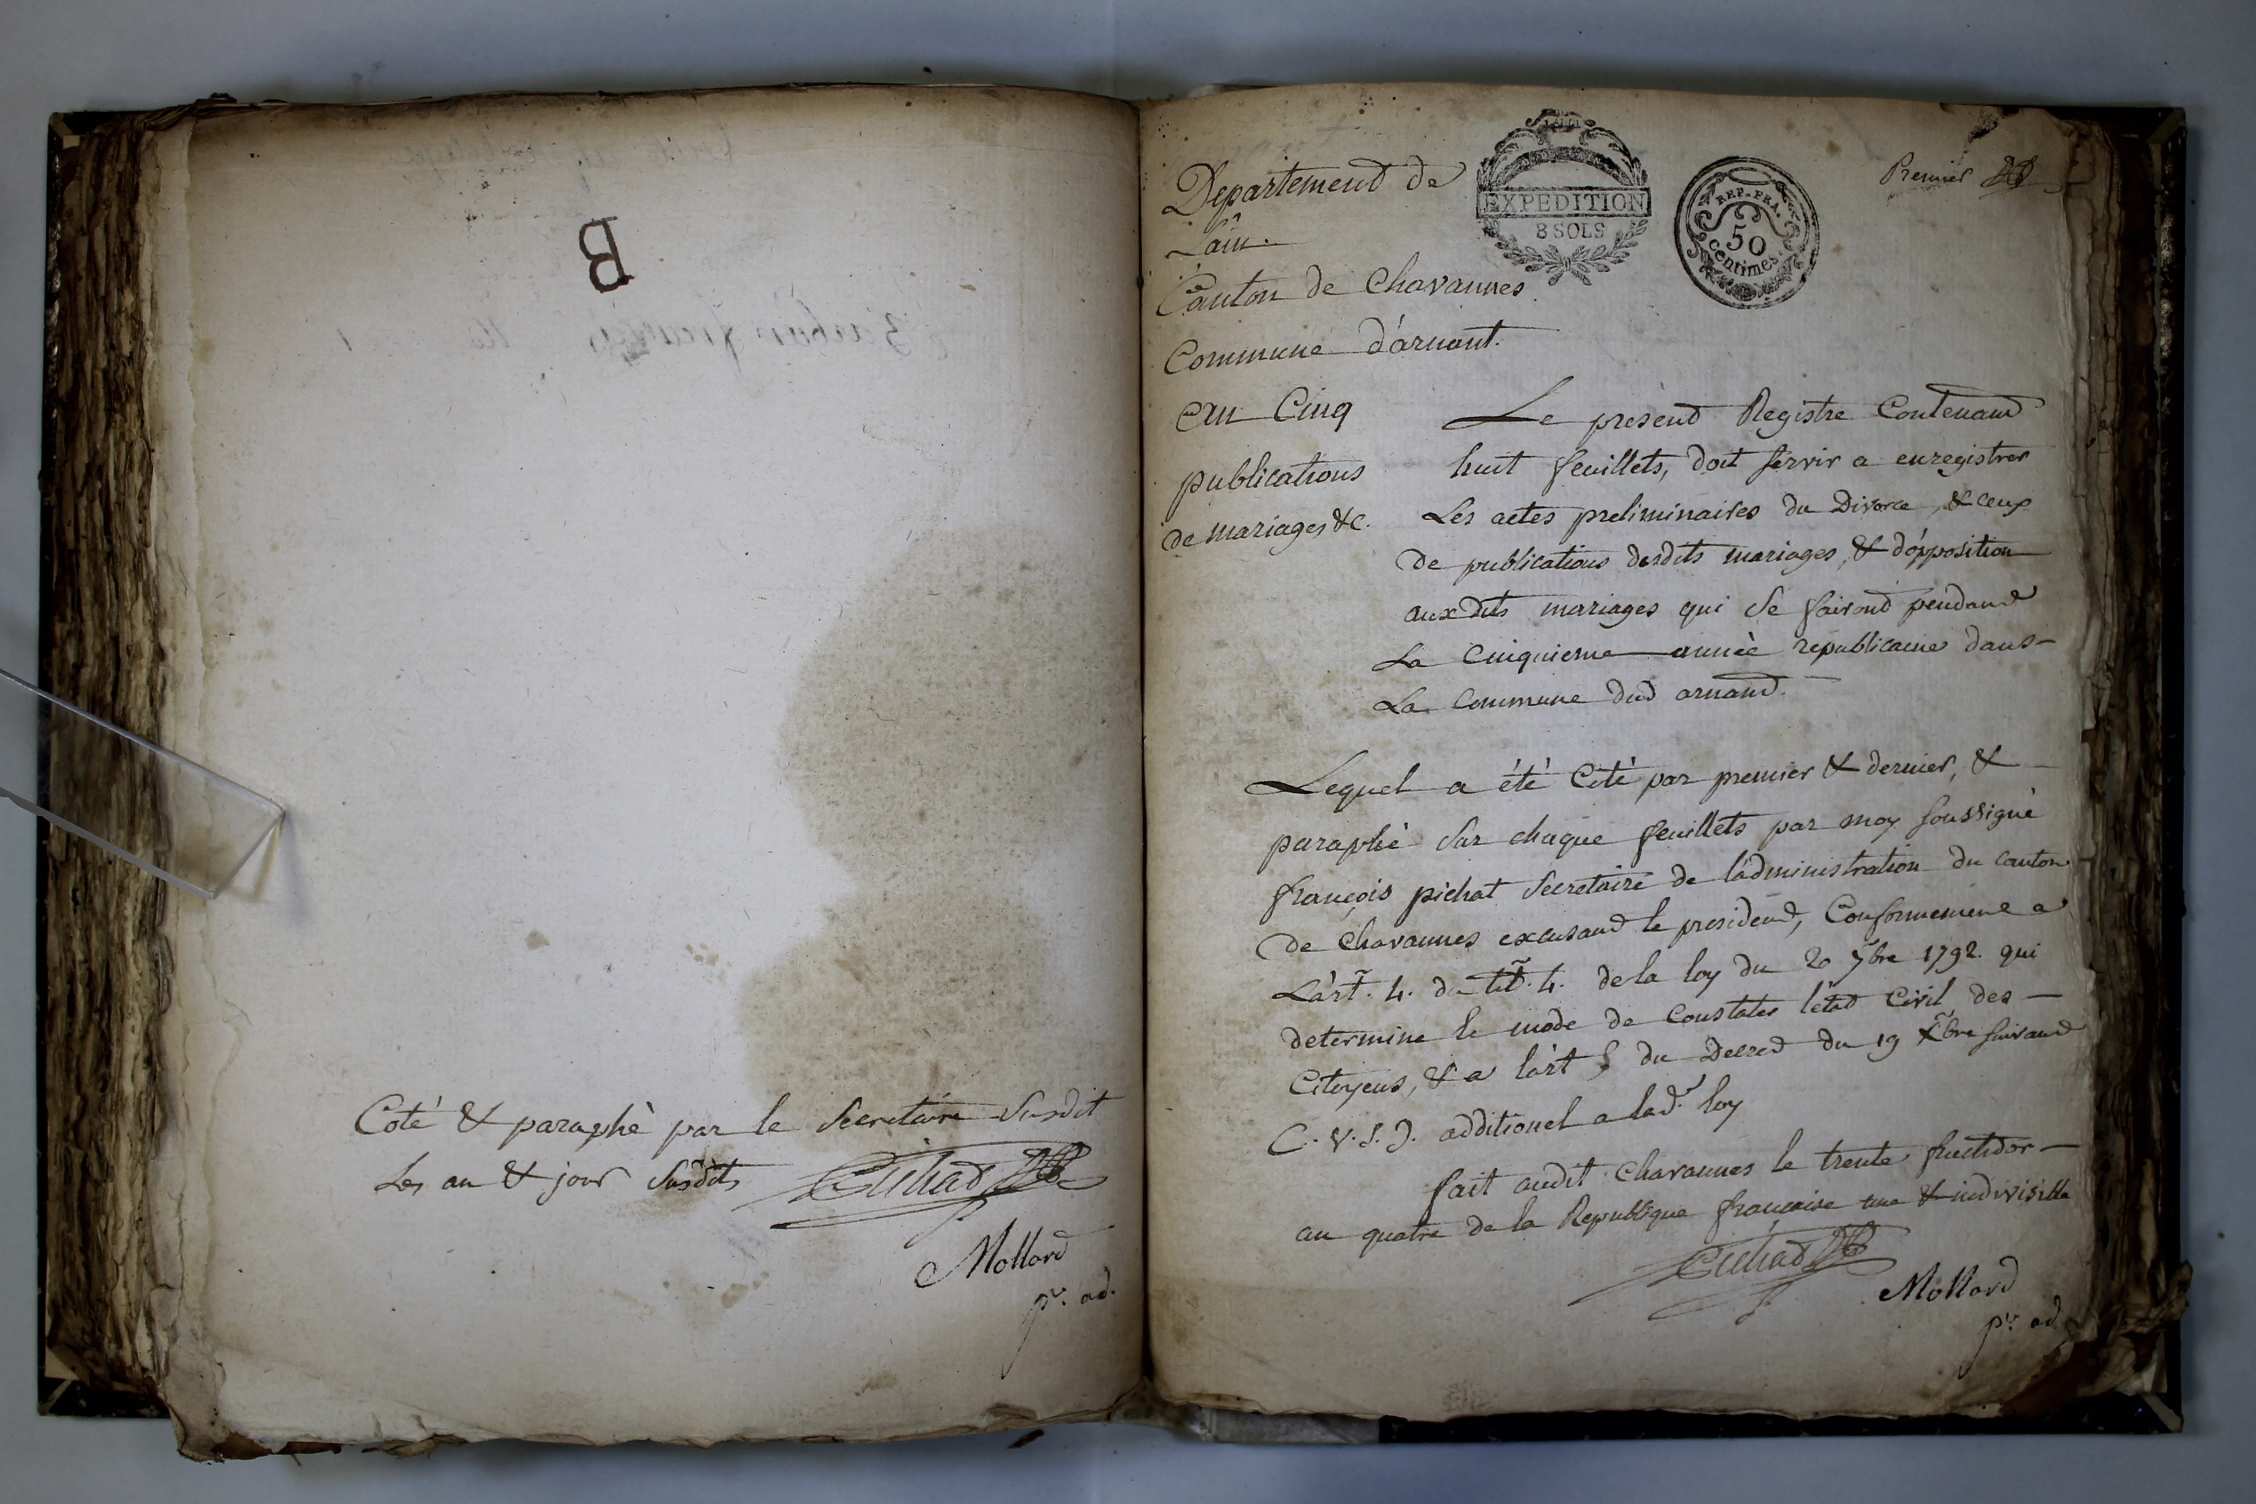 B
Coté & paraphè par le Secretaire Susdit
Les an & jour Susdits Pichat
Mollard
pr. ad.
Premier
EXPEDITION
8 SOLS
REP. FRA.
50
Centimes
Departement de
Lain.
Canton de Chavannes
Commune d'árnant.
an Cinq
publications
de mariages &c.
Le present Registre Contenant
huit feuillets, doit servir a enregistrer
Les actes preliminaires du Divorce, & ceux
de publications desdits mariages, & d'opposition
auxdits mariages qui Se fairont pendant
La Cinquieme année republicaine dans
La Commune dud arnand.
Lequel a été Coté par premier & dernier, &
paraphè Sur chaque feuillets par moy soussigné
françois pichat Secretaire de l'administration du canton
de Chavannes excusant le president, Conformement a
L'art. 4. du tit. 4. de la loy du 20 7bre 1792. qui
determine le mode de Constater l'état Civil des
Citoyens, & a l'art 5 du Decret du 19 Xbre suivant
C. V. S. J. additionel a lad. loy
fait audit Chavannes le trente fructidor
an quatre de la Republique françaisе une & indivisible
Pichat
Mollard
pr. ad.